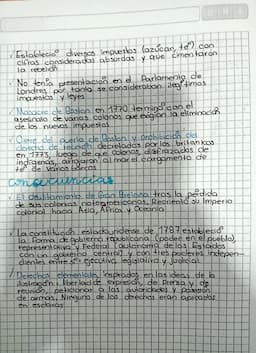 ✓ Estableció diversos impuestos (azúcar, té) con
cifras consideradas absurdas y que cimentaron
la rebelión
No tenía presentación en el Parlamento de
Londres, por tanto se consideraban ilegítimos
impuestos y leyes
✓ Masacre de Boston en 1770 terminó con el
asesinato de varios colonos que exigían la eliminación
de los nuevos impuestos.
✓ Cierre del puerto de Boston y prohibición del
derecho de reunión decretados por los británicos
en 1773, luego de que colonos, disfrazados de
indígenas, arrojaran al mar el cargamento de
té de varios barcos
consecuencias
✓ El debilitamiento de Gran Bretaña tras la pérdida
de sus colonias norteamericanas. Reorientó su imperio
colonial hacia Asia, África y Oceanía
✓ La constitución estadounidense de 1787 estableció
la forma de gobierno republicana (poder en el pueblo),
representativa y Federal (autonomía de los Estados
con un gobierno central) y con tres poderes indepen-
dientes entre sí: ejecutivo, legislativo y judicial.
✓ Derechos elementales, inspirados en las ideas de la
ilustración: libertad de expresión, de prensa y de
reunión, peticionar a las autoridades y posesión
de armas. Ninguno de los derechos eran aplicados
en esclavos